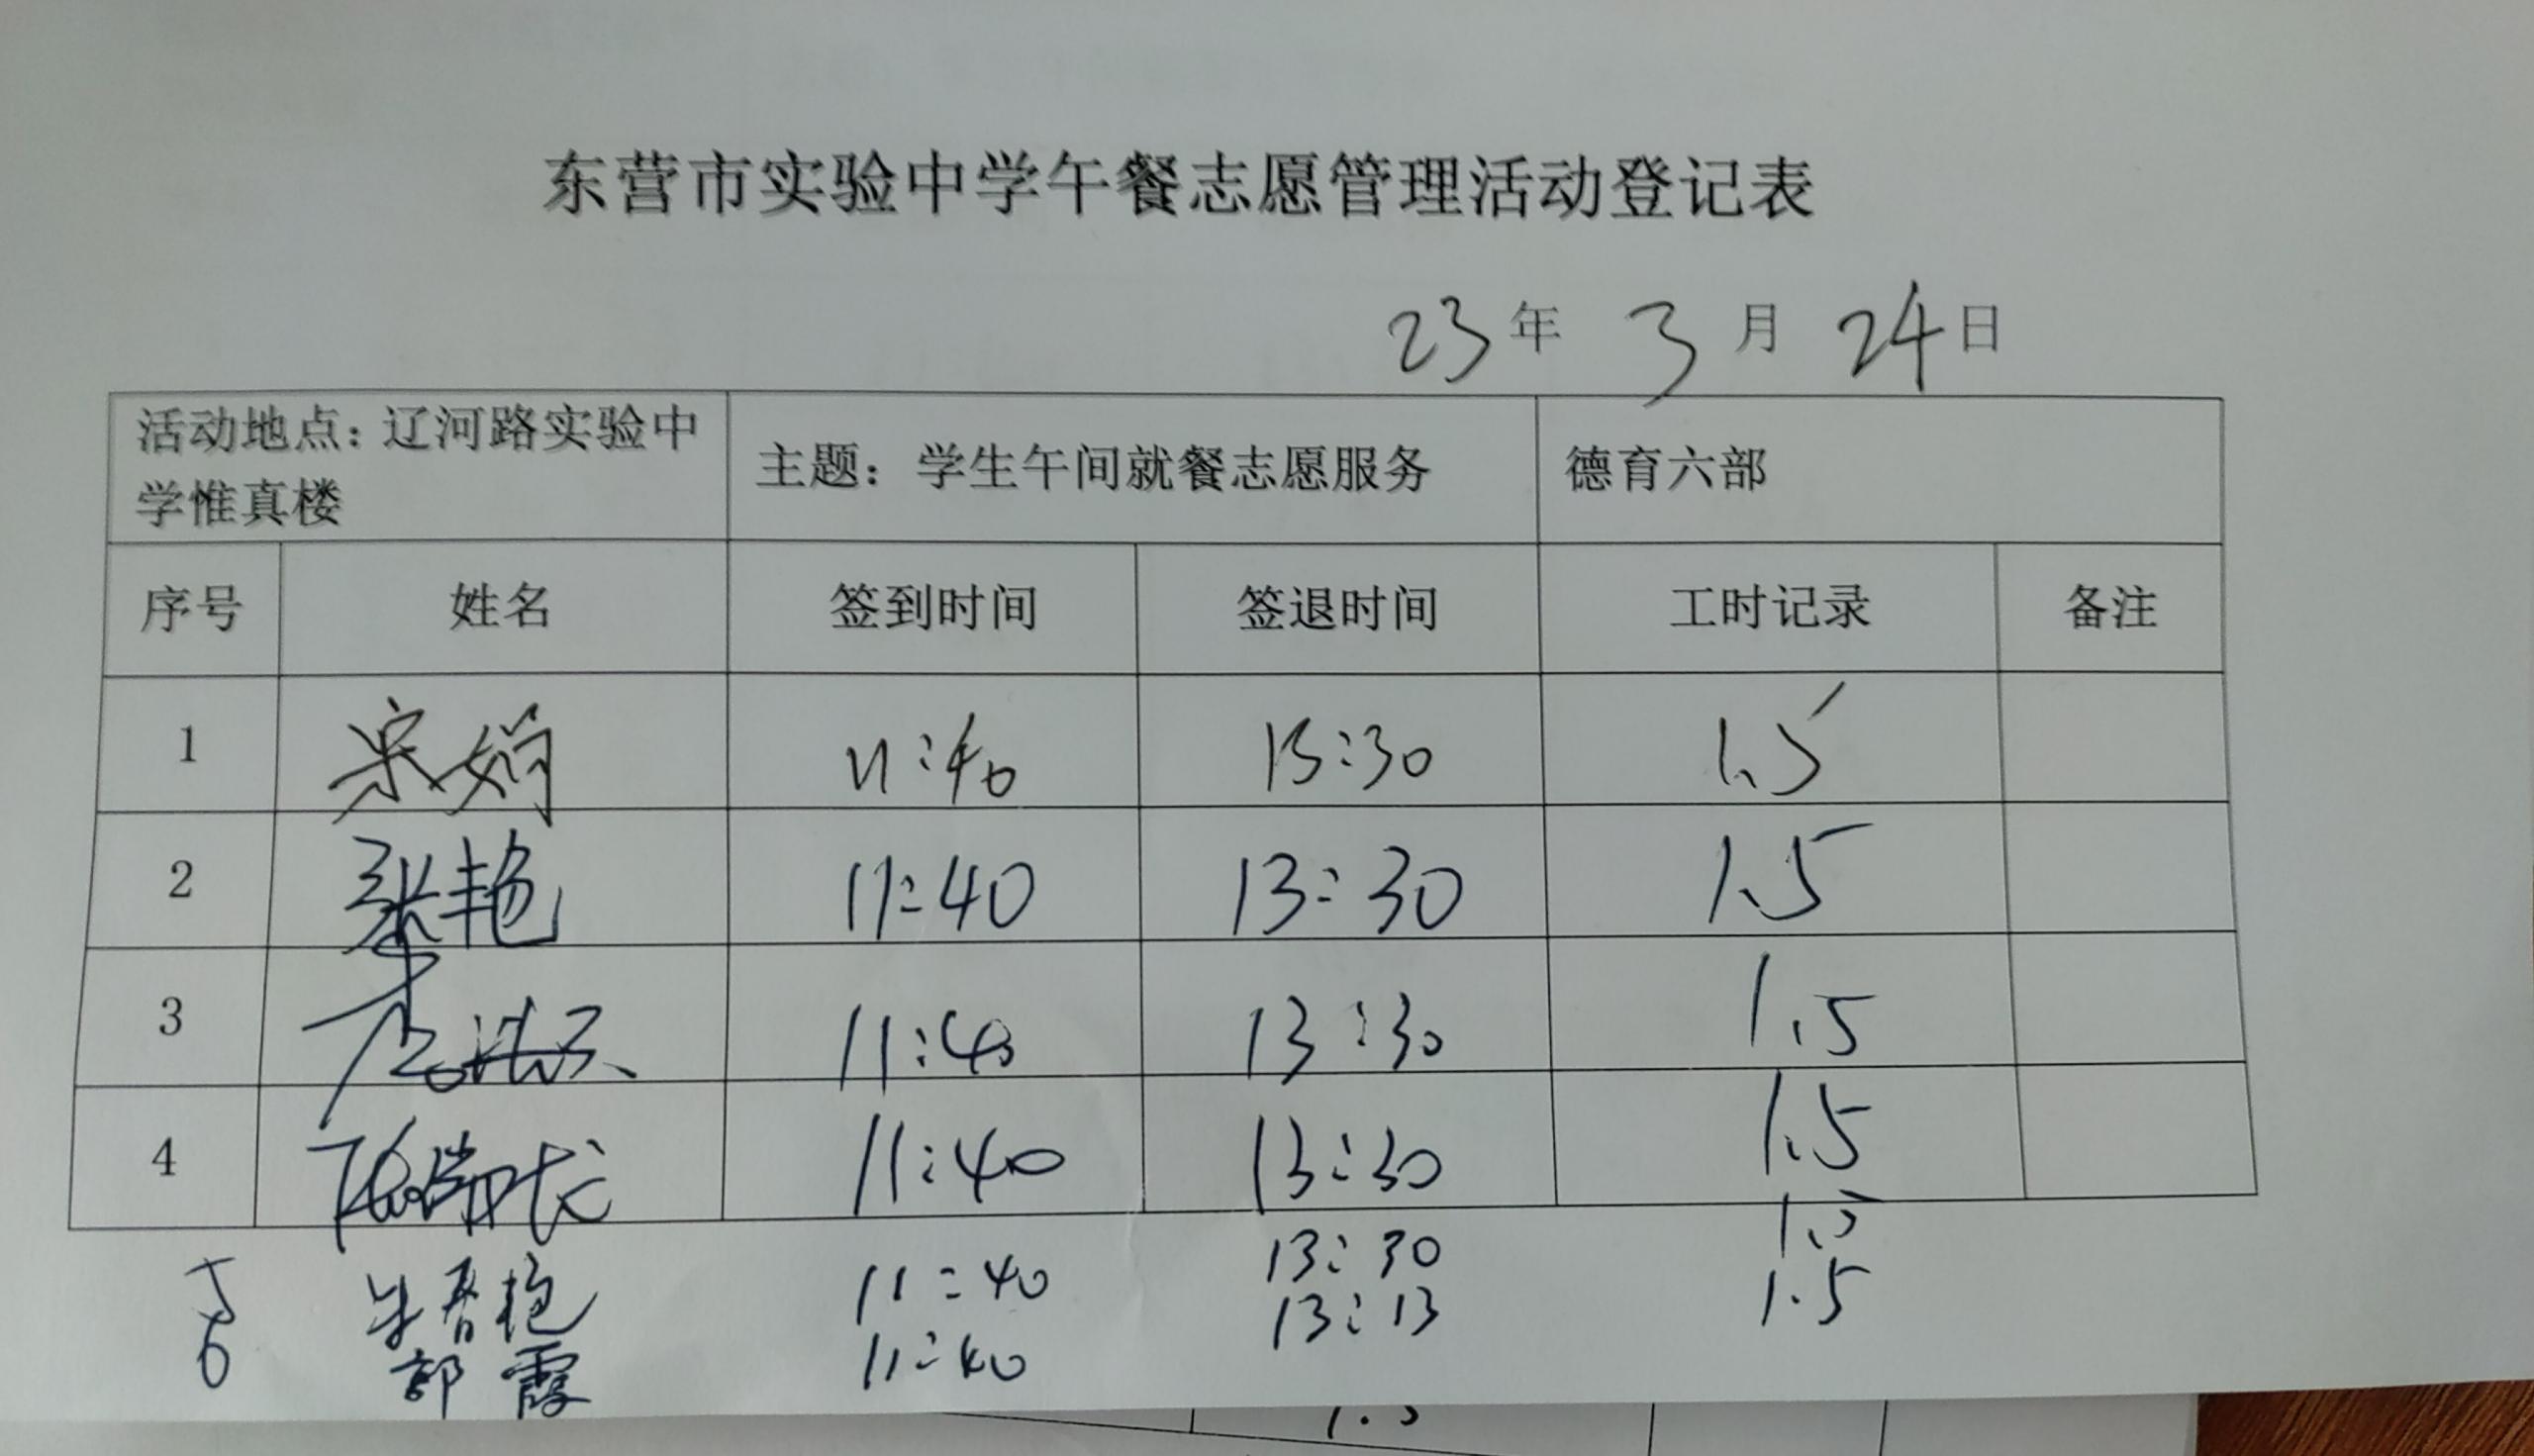 东营市实验中学午餐志愿管理活动登记表
23年 3月 24日
活动地点：辽河路实验中
学惟真楼
主题：学生午间就餐志愿服务
德育六部
序号 姓名 签到时间 签退时间 工时记录 备注
1 宋娟 11:40 13:30 1.5
2 张艳 11:40 13:30 1.5
3 11:40 13:30 1.5
4 11:40 13:30 1.5
5 11:40 13:30 1.5
6 郭霞 11:40 13:13 1.5
1.5